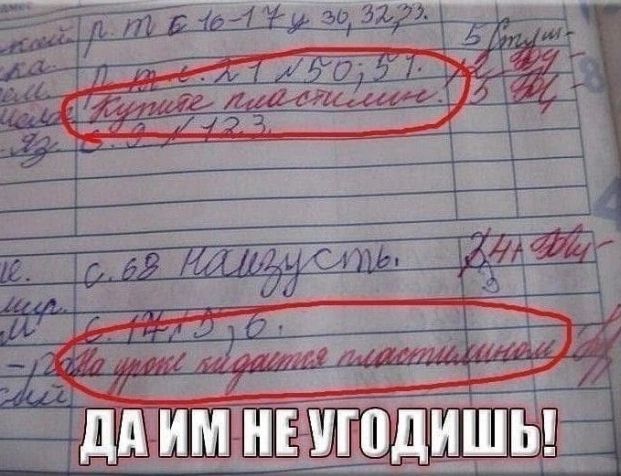 р. т с 16-17 у 30, 32, 33.
5
р. т. с. 21 № 50; 51.
Купите пластилин.
5
с. 9 № 123
с. 68 наизусть.
4+
с. 17 № 5, 6.
На уроке кидается пластилином
ДА ИМ НЕ УГОДИШЬ!